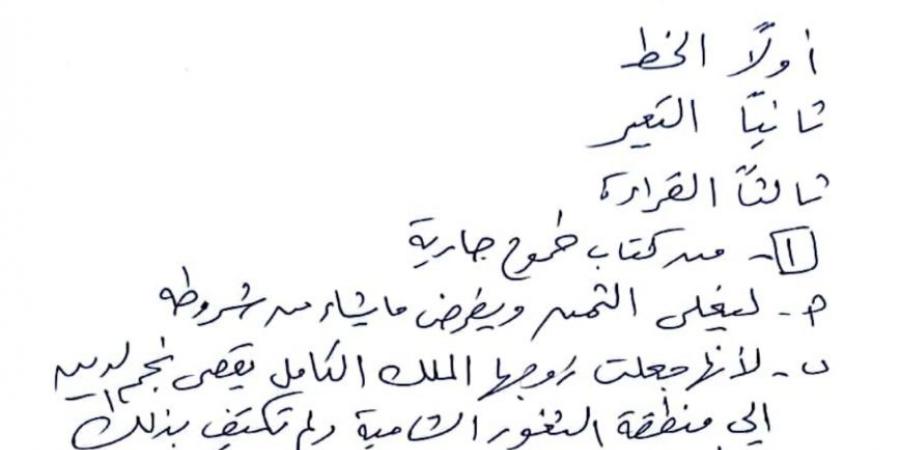 أولاً الخط
ثانياً التعبير
ثالثاً القراءة
١- من كتاب طموح جارية
م- ليغلى الثمن ويفرض ما يشاء من شروطه
ب- لأنها جعلت زوجها الملك الكامل يقصى نجم الدين
إلي منطقة الثغور الشامية ولم تكتفِ بذلك